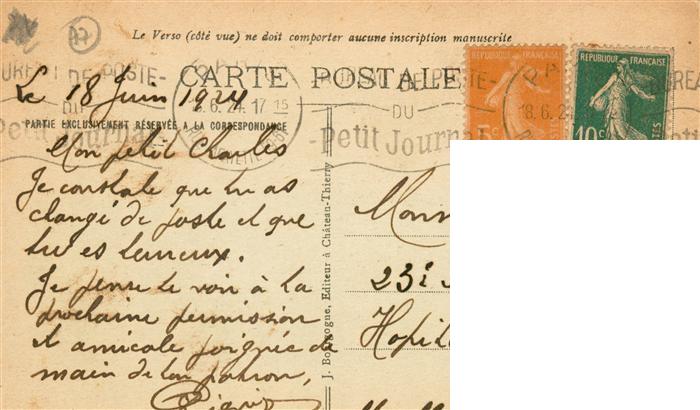 Le Verso (côté vue) ne doit comporter aucune inscription manuscrite
CARTE POSTALE
Le 18 Juin 1924
PARTIE EXCLUSIVEMENT RÉSERVÉE A LA CORRESPONDANCE
Mon petit Charles
Je constate que tu as
changé de poste et que
tu es heureux.
Je pense te voir à la
prochaine permission
et amicale poignée de
main de ton patron,
J. Bourgogne, Editeur à Château-Thierry
REPUBLIQUE FRANÇAISE
REPUBLIQUE FRANÇAISE
10c
18.6.24
DU
Petit Journal
23e